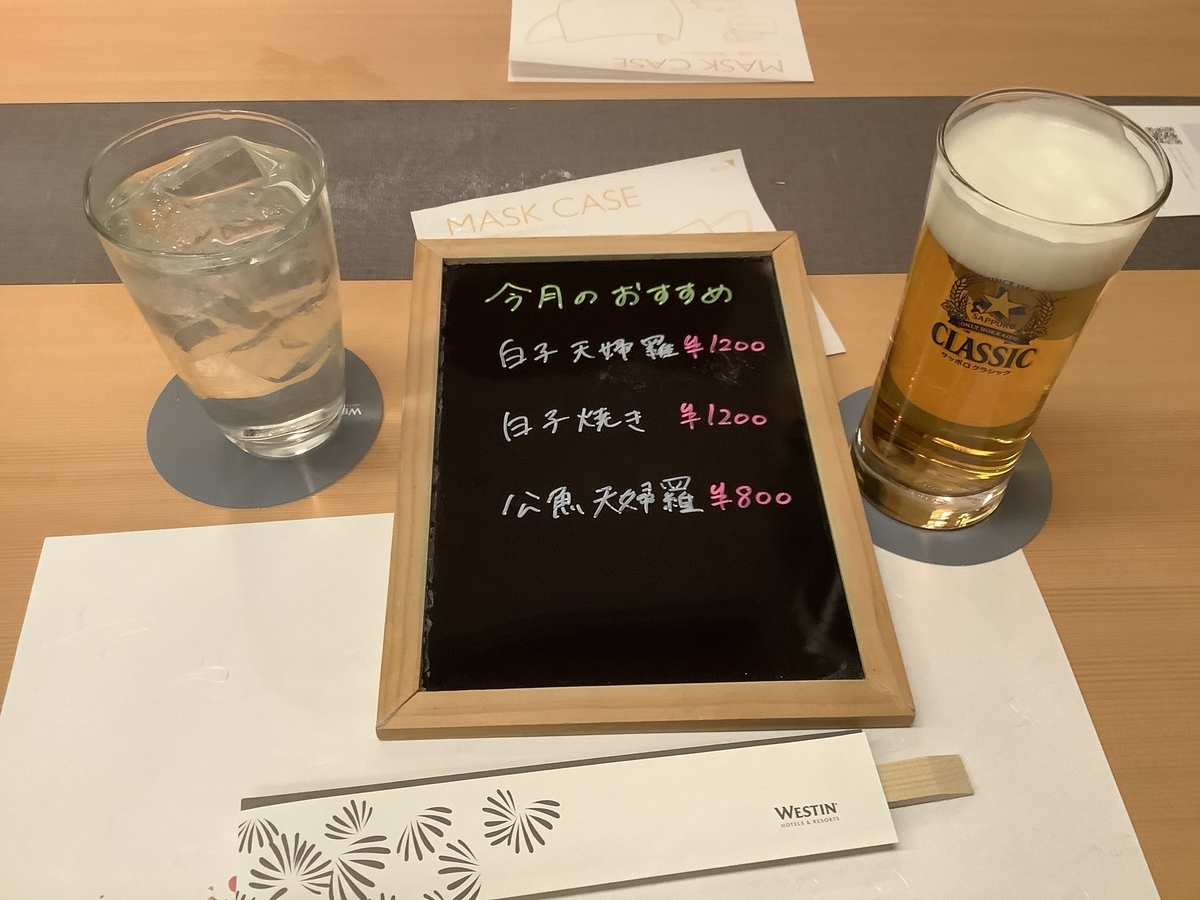 MASK CASE
MASK CASE
今月のおすすめ
白子天婦羅 ¥1200
白子焼き ¥1200
公魚天婦羅 ¥800
SAPPORO
ONLY HOKKAIDO
CLASSIC
サッポロクラシック
WESTIN
HOTELS & RESORTS